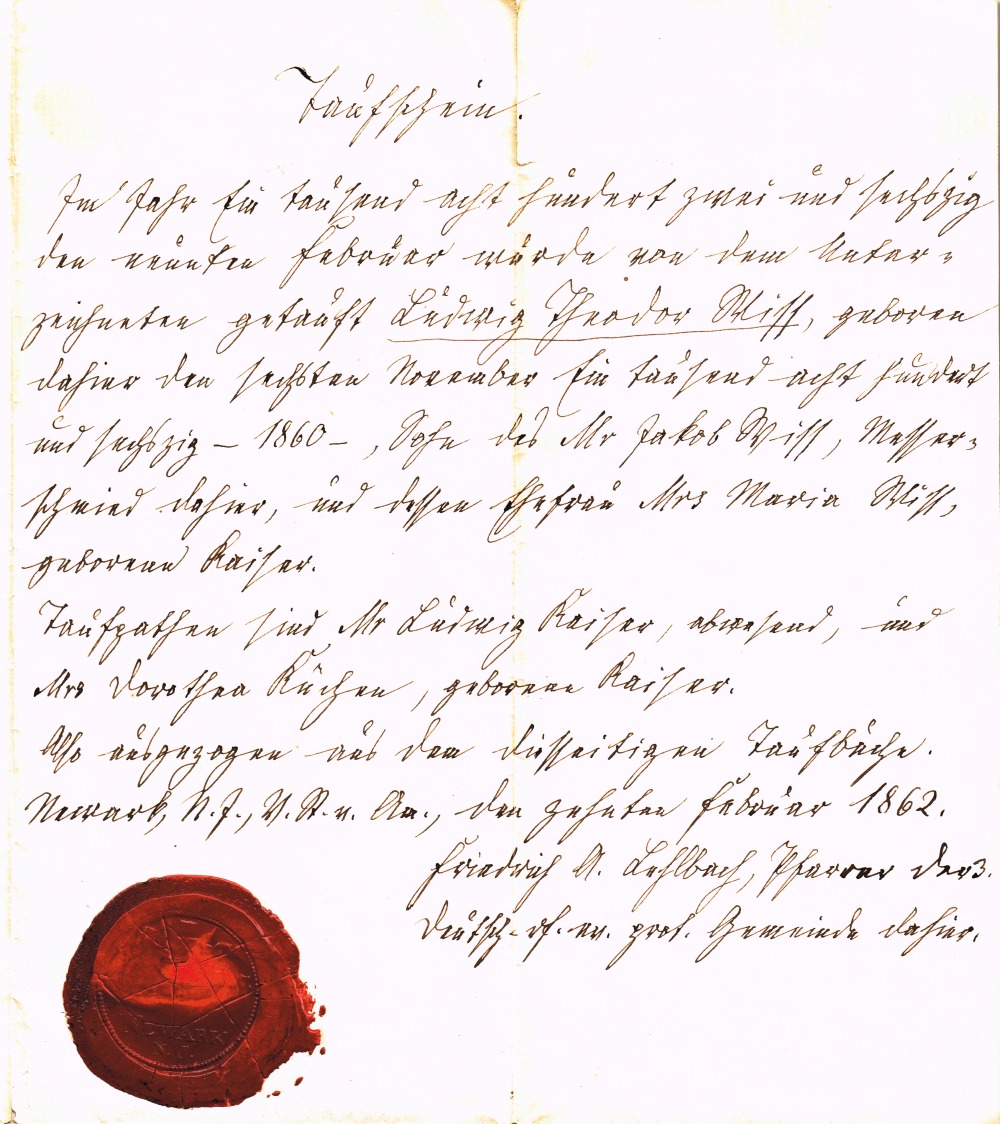 Taufschein.
Im Jahr Ein tausend acht hundert zwei und sechszig
den neunten Februar wurde von dem Unter-
zeichneten getauft Ludwig Theodor Wiss, geboren
dahier den sechsten November Ein tausend acht hundert
und sechszig – 1860 –, Sohn des Mr Jakob Wiss, Messer-
schmied dahier, und dessen Ehefrau Mrs Maria Wiss,
geborene Kaiser.
Taufpathen sind Mr Ludwig Kaiser, abwesend, und
Mrs Dorothea Küchen, geborene Kaiser.
Also ausgezogen aus dem diesseitigen Taufbuche.
Newark, N. J., V. St. v. Am., den zehnten Februar 1862.
Friedrich A. Lehlbach, Pfarrer der 3.
deutsch. ev. prot. Gemeinde dahier.
NEWARK
N. J.